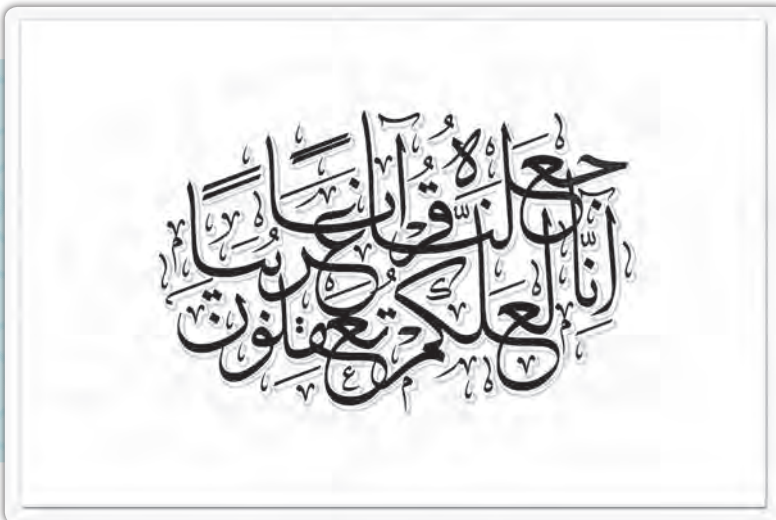 إنّا جعلناه قرآناً عربياً
لعلكم تعقلون